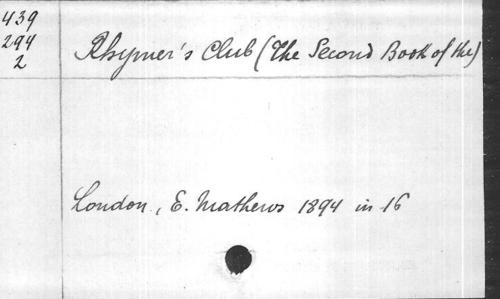 439
294
2
Rhymer's Club (The Second Book of the)
London, E. Mathews 1894 in 16